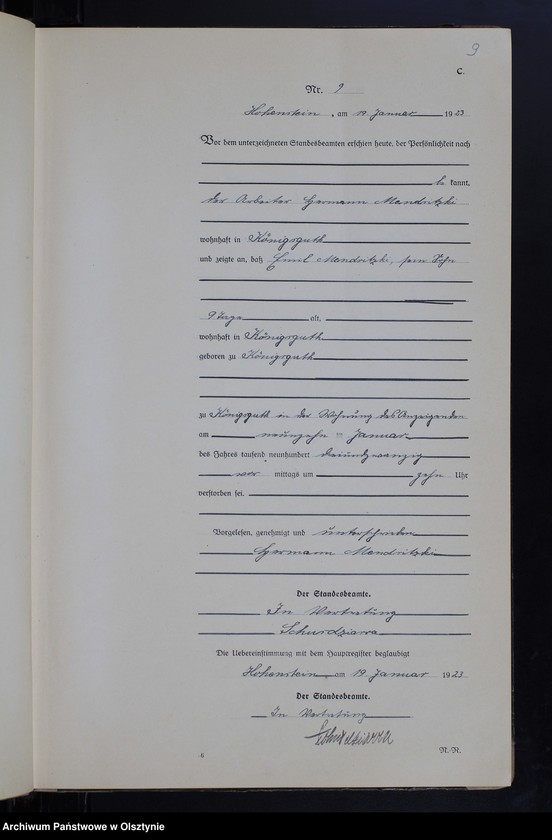 9
C.
Nr. 9
Hohenstein, am 19 Januar 1923
Vor dem unterzeichneten Standesbeamten erschien heute, der Persönlichkeit nach
be kannt,
der Arbeiter Hermann Mendritzki
wohnhaft in Königsguth
und zeigte an, daß Emil Mendritzki, sein Sohn
9 Tage alt,
wohnhaft in Königsguth
geboren zu Königsguth
zu Königsguth in der Wohnung des Anzeigenden
am neunzehn Januar
des Jahres tausend neunhundert dreiundzwanzig
vor mittags um zehn Uhr
verstorben sei.
Vorgelesen, genehmigt und unterschrieben
Hermann Mendritzki
Der Standesbeamte.
In Vertretung
Die Uebereinstimmung mit dem Hauptregister beglaubigt
Hohenstein am 19 Januar 1923
Der Standesbeamte.
In Vertretung
6
N.-N.
Archiwum Państwowe w Olsztynie